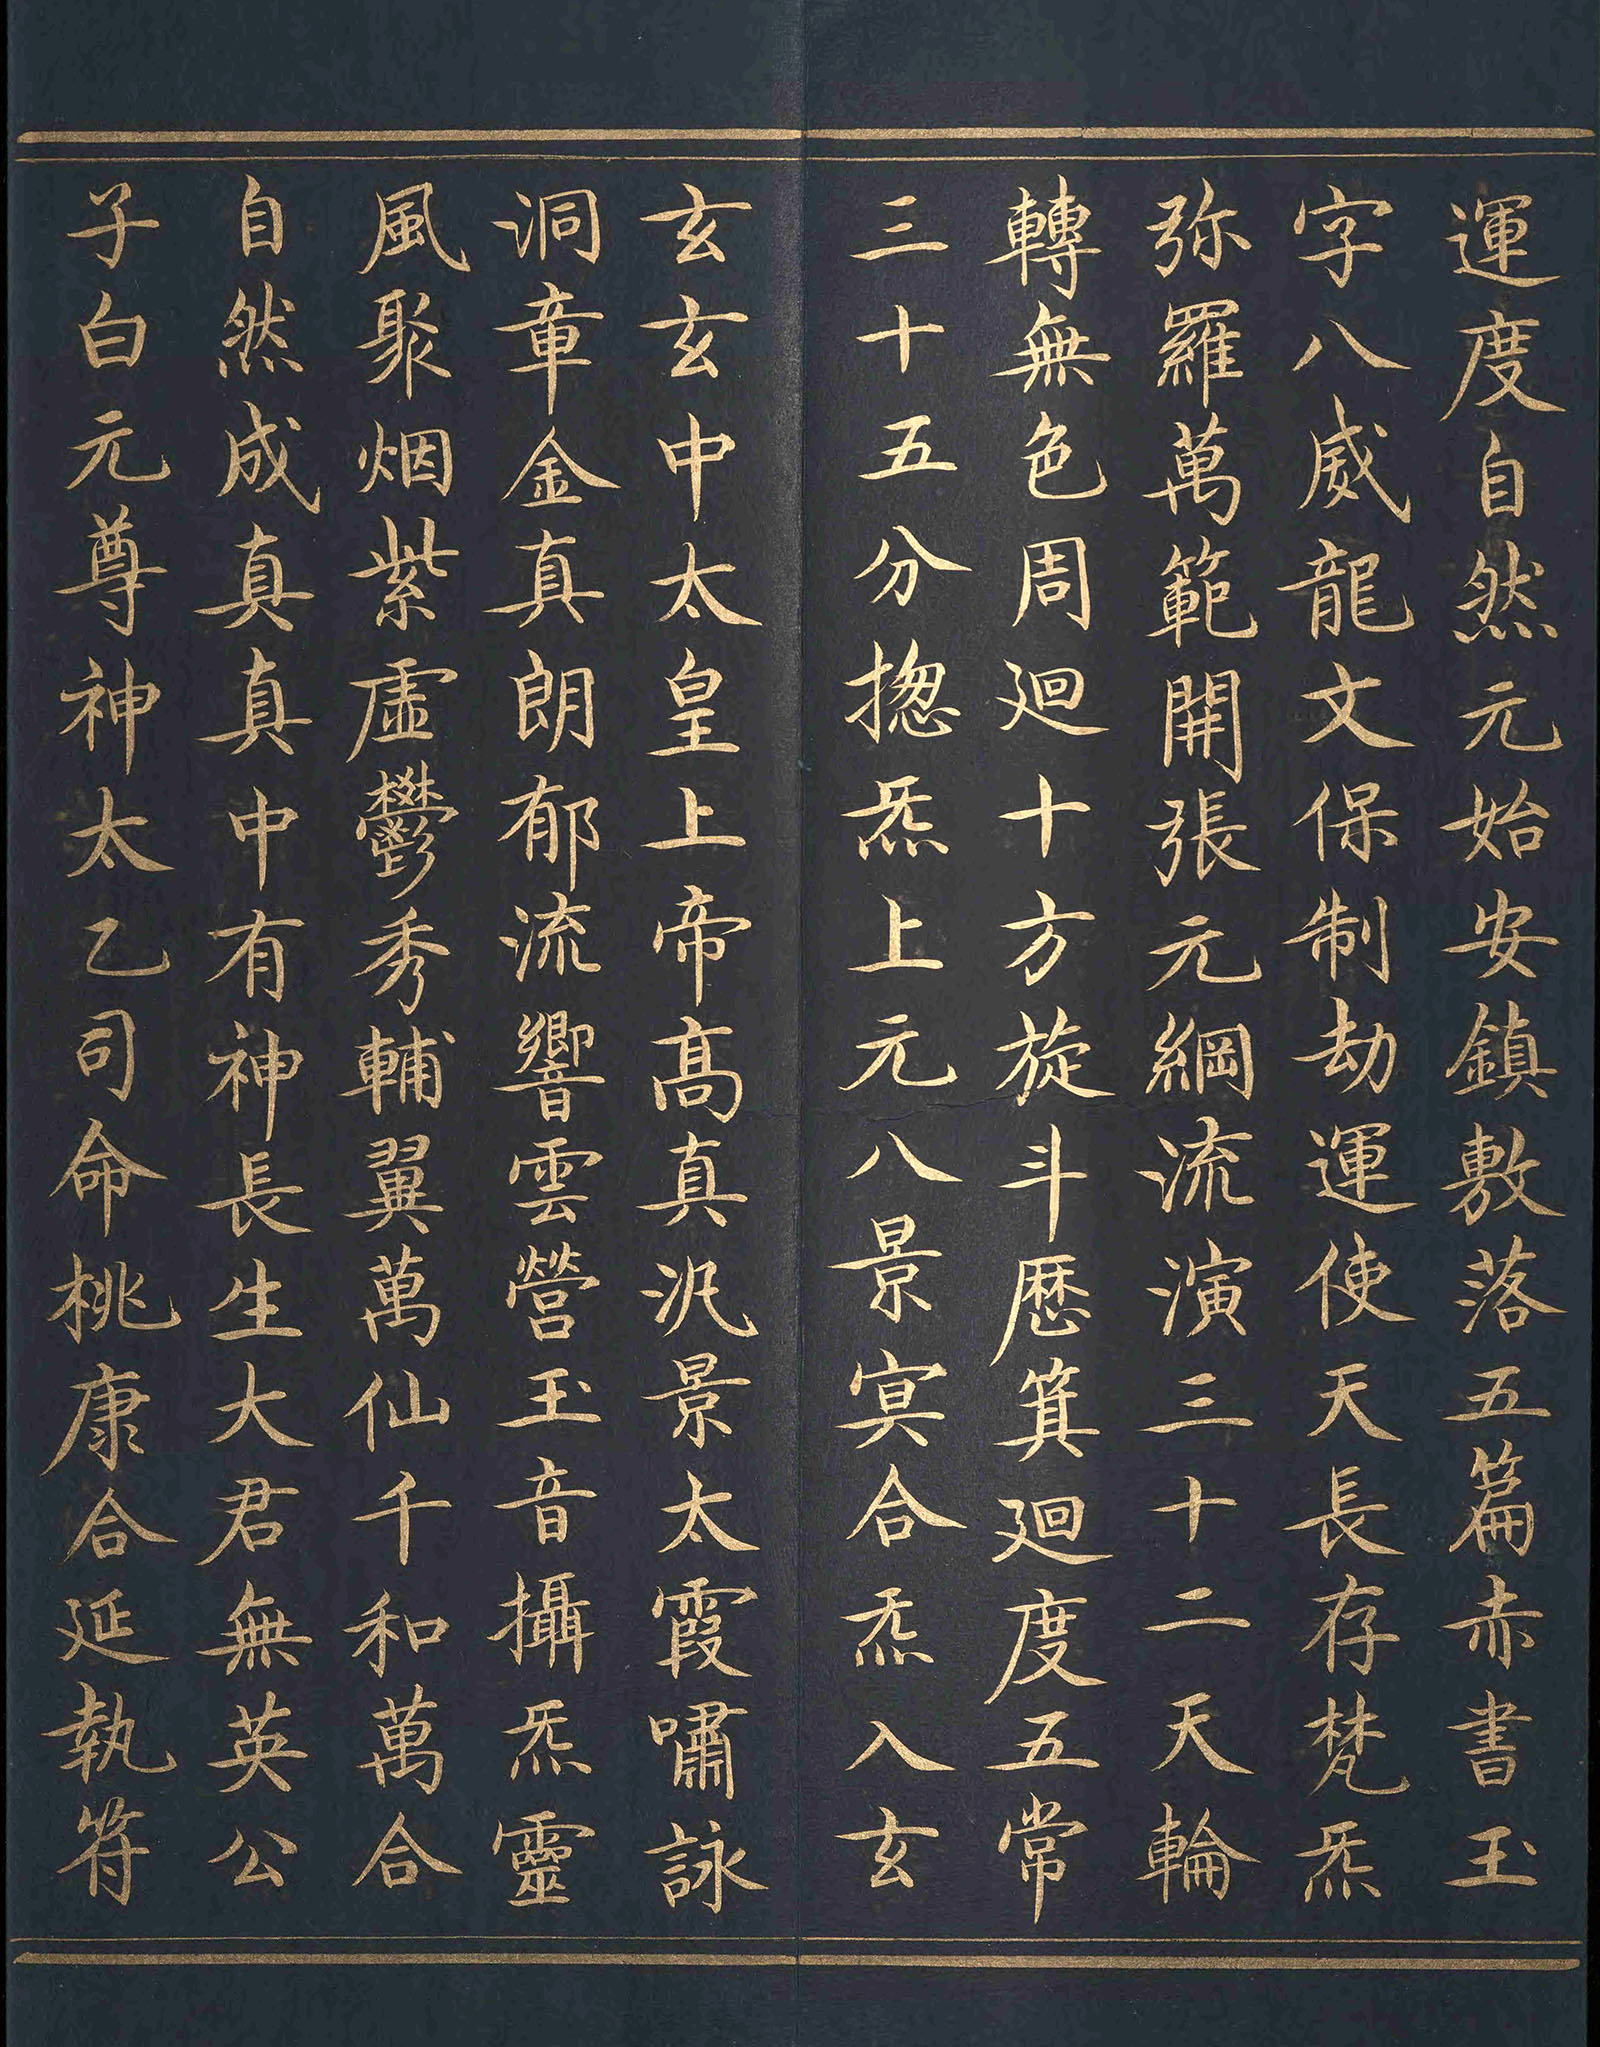 運度自然元始安鎮敷落五篇赤書玉
字八威龍文保制劫運使天長存梵炁
弥羅萬範開張元綱流演三十二天輪
轉無色周廻十方旋斗歷箕廻度五常
三十五分揔炁上元八景冥合炁入玄
玄玄中太皇上帝高真汎景太霞嘯詠
洞章金真朗郁流響雲營玉音攝炁靈
風聚烟紫虛鬱秀輔翼萬仙千和萬合
自然成真真中有神長生大君無英公
子白元尊神太乙司命桃康合延執符